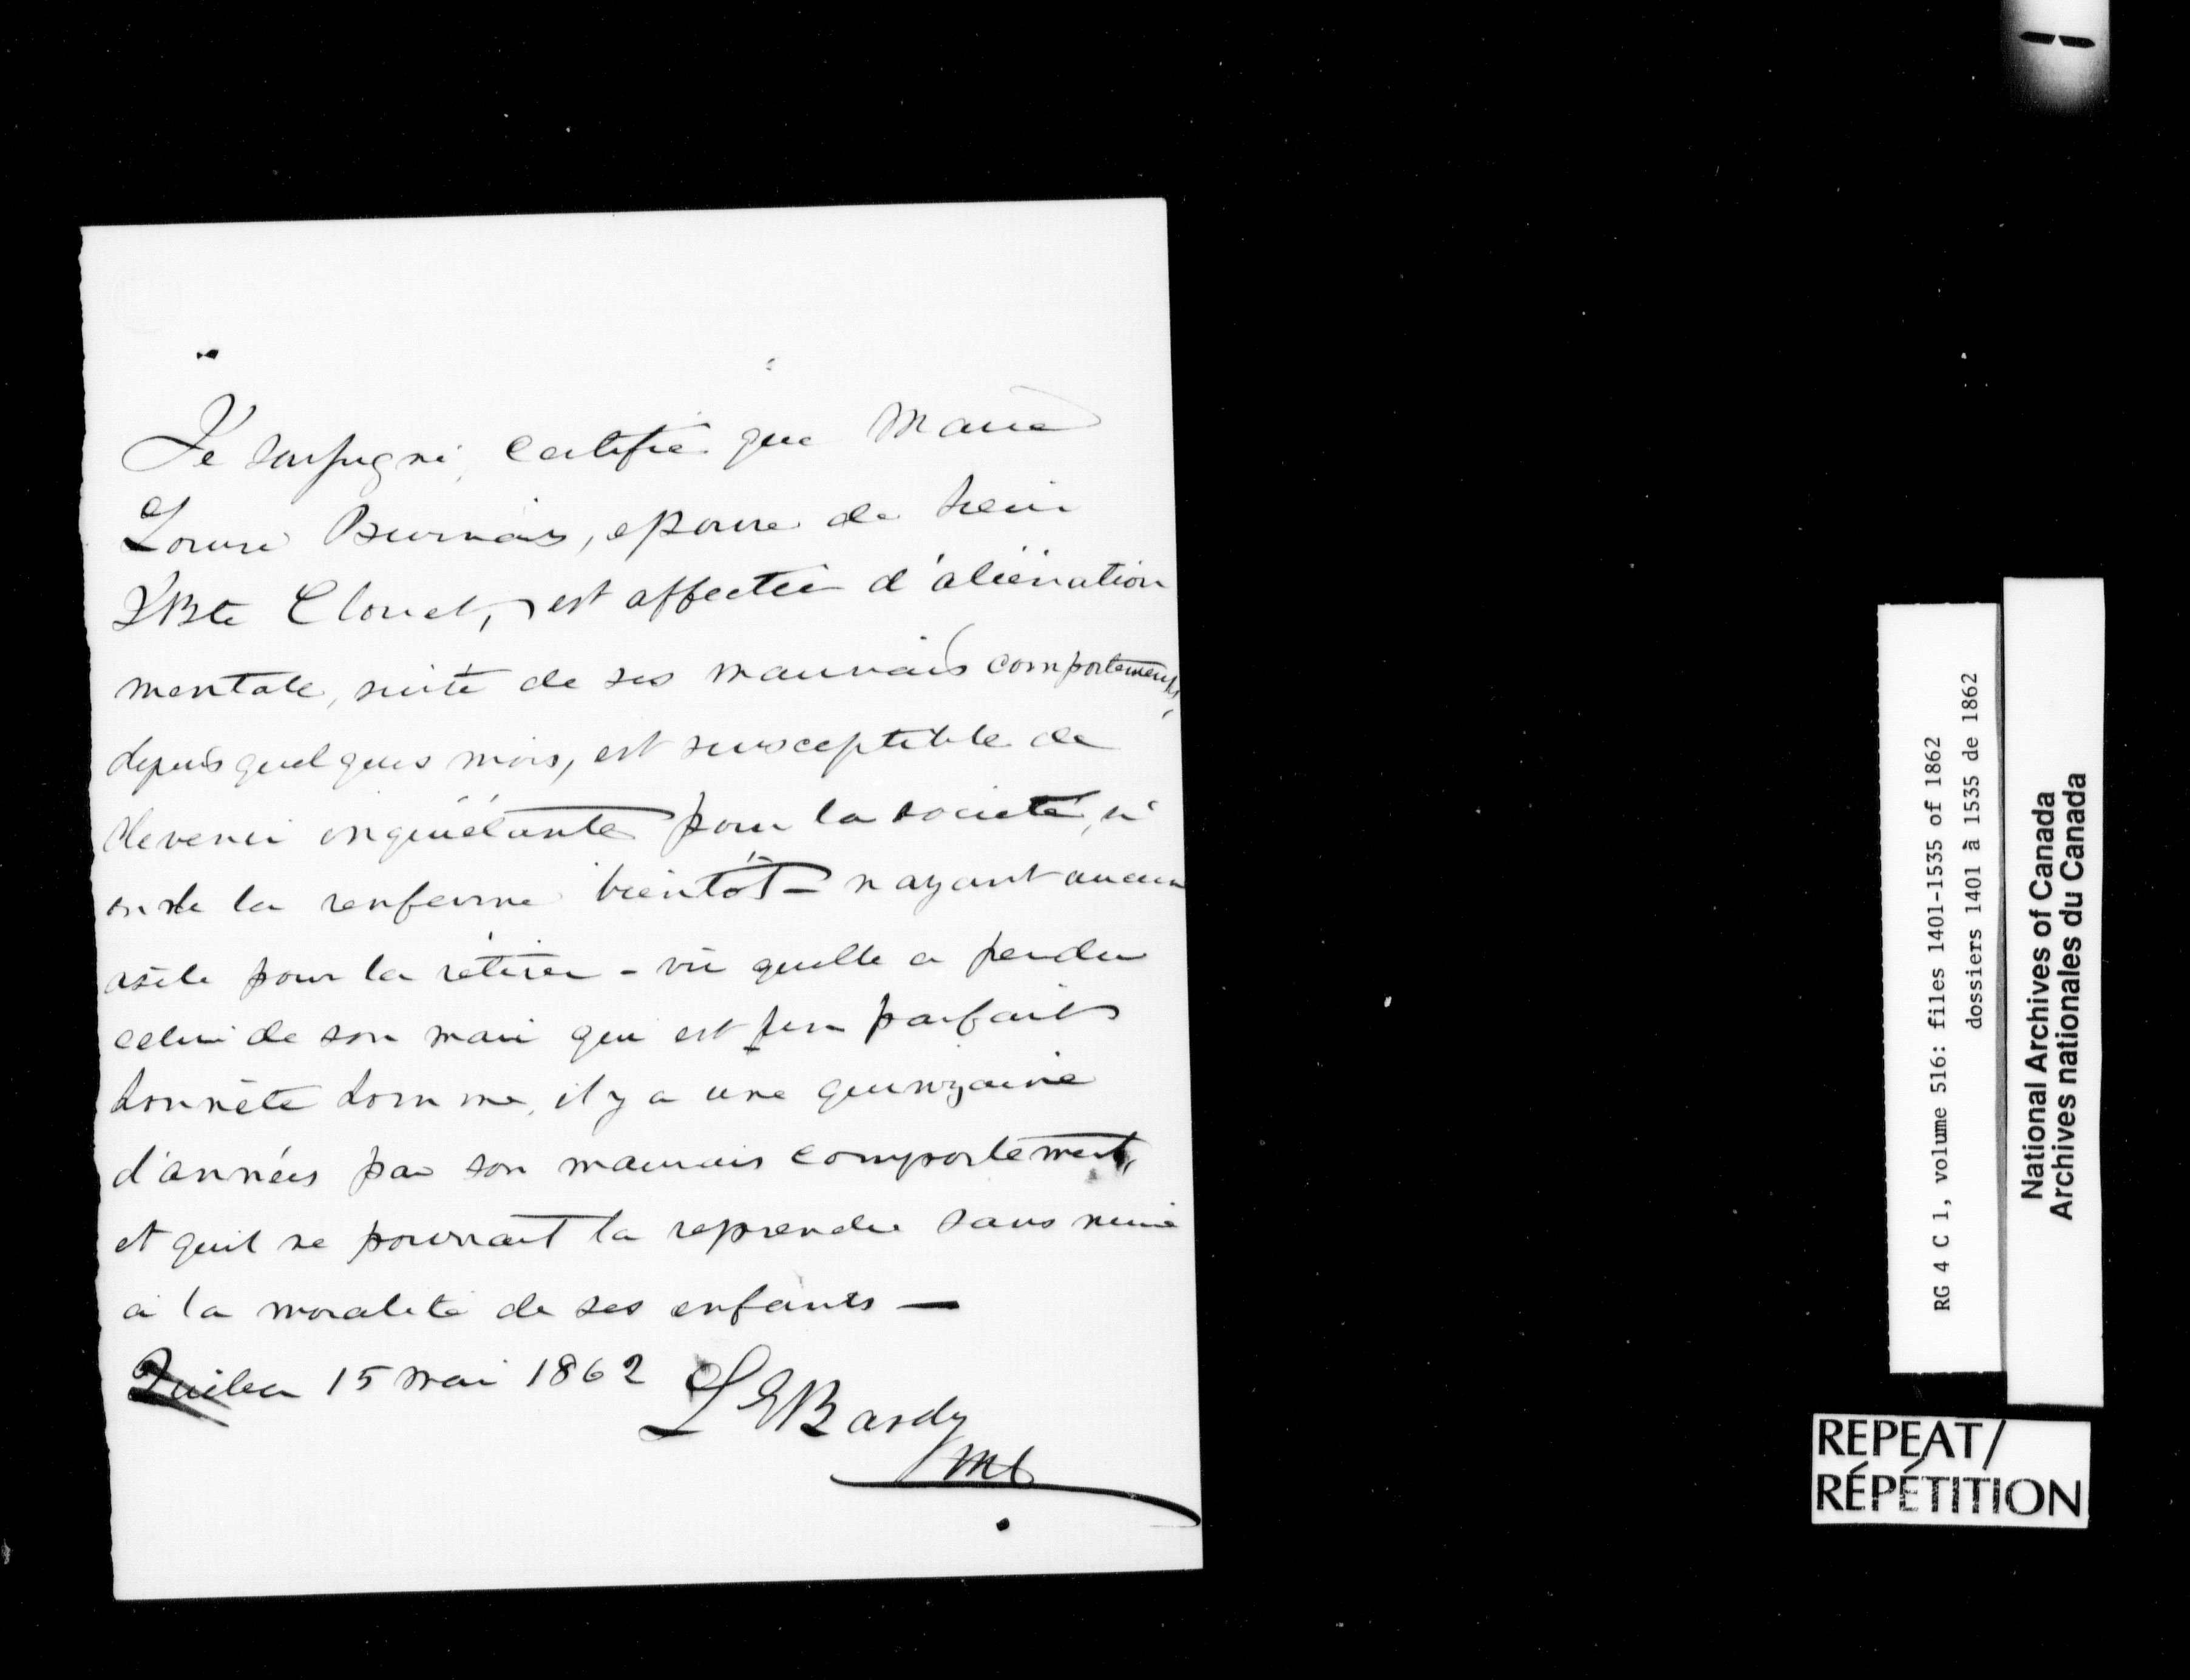 Je soussigné, certifie que Marie
Louise Bernais, épouse de Sieur
JBte Clouet, est affectée d'aliénation
mentale, suite de ses mauvais comportements,
depuis quelques mois, est susceptible de
devenir inquiétante pour la société, si
on ne la renferme bientôt – n'ayant aucun
asile pour la retirer – vu qu'elle a perdu
celui de son mari qui est un parfait
honnête homme, il y a une quinzaine
d'années par son mauvais comportement,
et qu'il ne pourrait la reprendre sans nuire
à la moralité de ses enfants —
Québec 15 mai 1862
Bardy
RG 4 C 1, volume 516: files 1401-1535 of 1862
dossiers 1401 à 1535 de 1862
National Archives of Canada
Archives nationales du Canada
REPEAT/
RÉPÉTITION